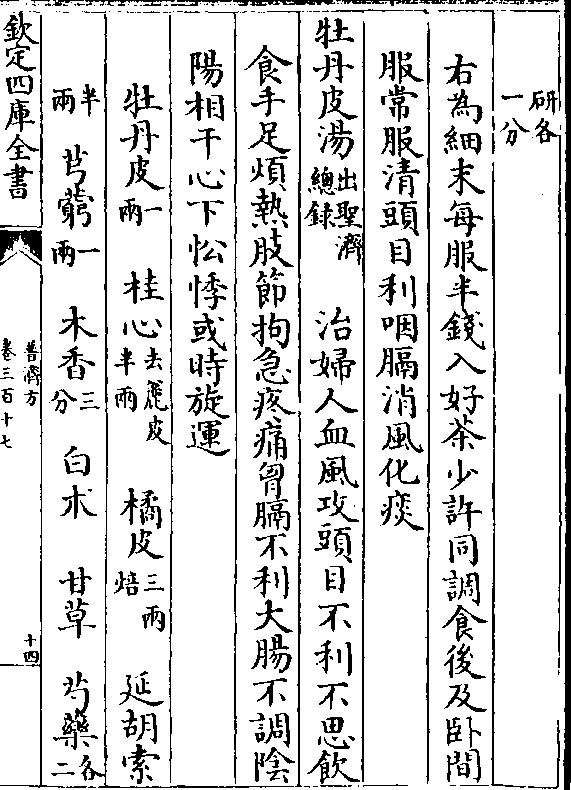 研各
一分
右為細末每服半錢入好茶少許同調食後及卧間
服常服清頭目利咽膈消風化痰
牡丹皮湯出聖濟總録　治婦人血風攻頭目不利不思飲
食手足煩熱肢節拘急疼痛胷膈不利大腸不調陰
陽相干心下忪悸或時旋運
牡丹皮一兩　桂心去麄皮半兩　橘皮三兩焙　延胡索
半兩　芎藭一兩　木香三分　白术　甘草　芍藥各二
欽定四庫全書
普濟方
卷三百十七
十四